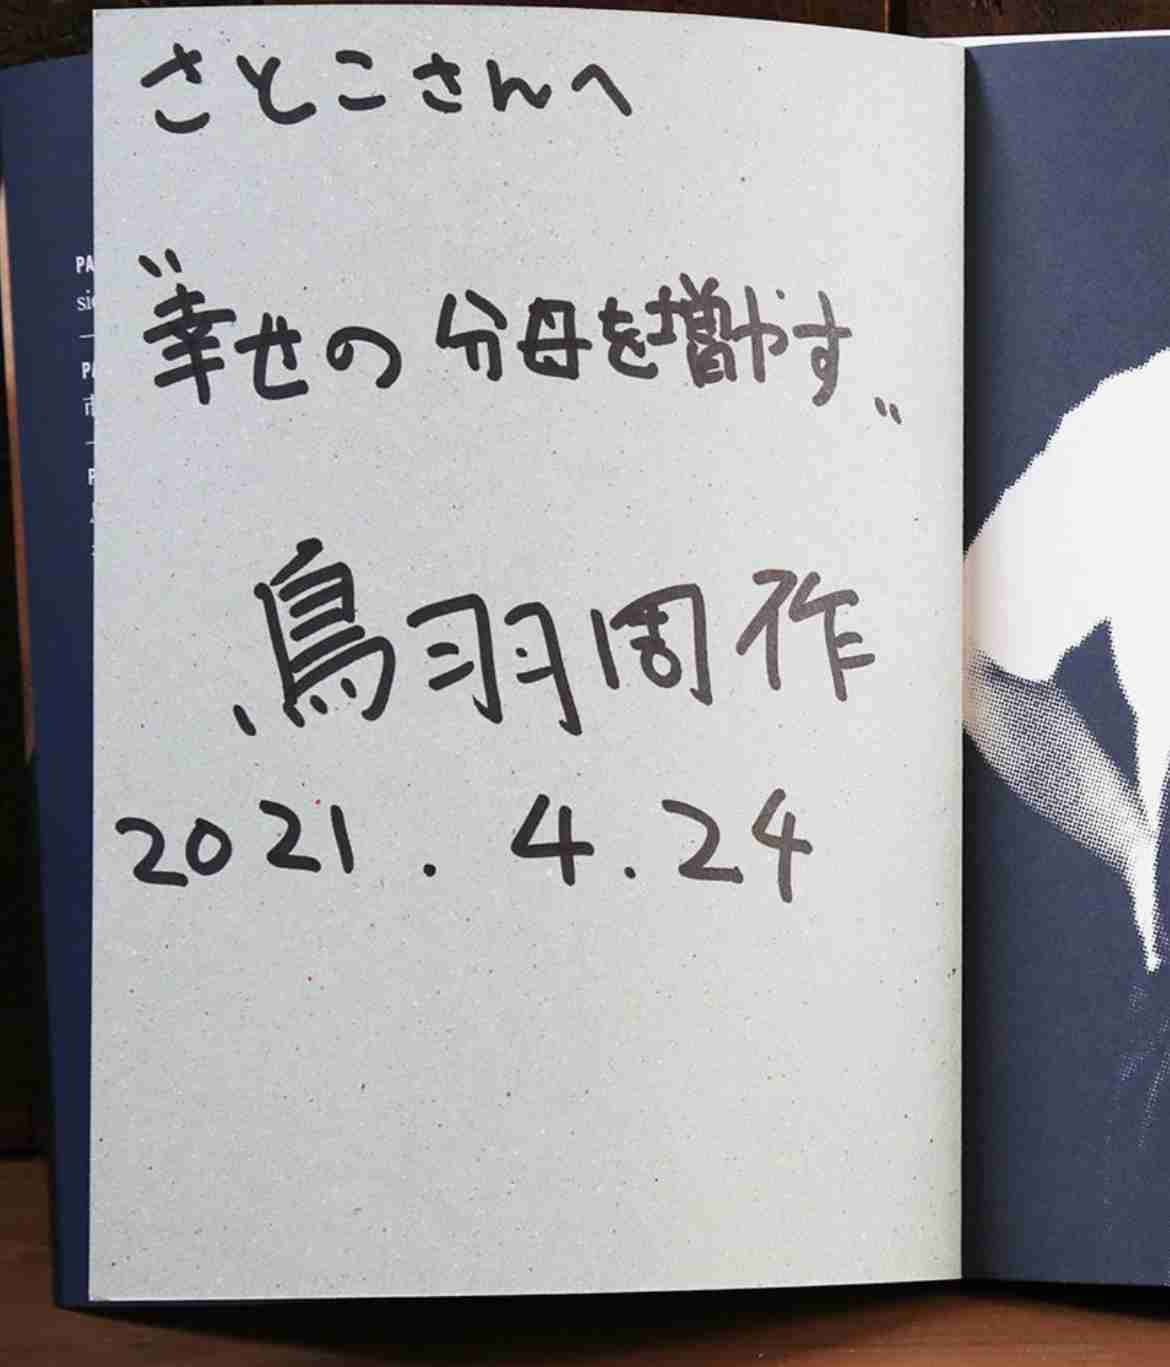 さとこさんへ
〝幸せの 分母を増やす〟
鳥羽周作
2021.4.24
PA
sid
PA
市
P